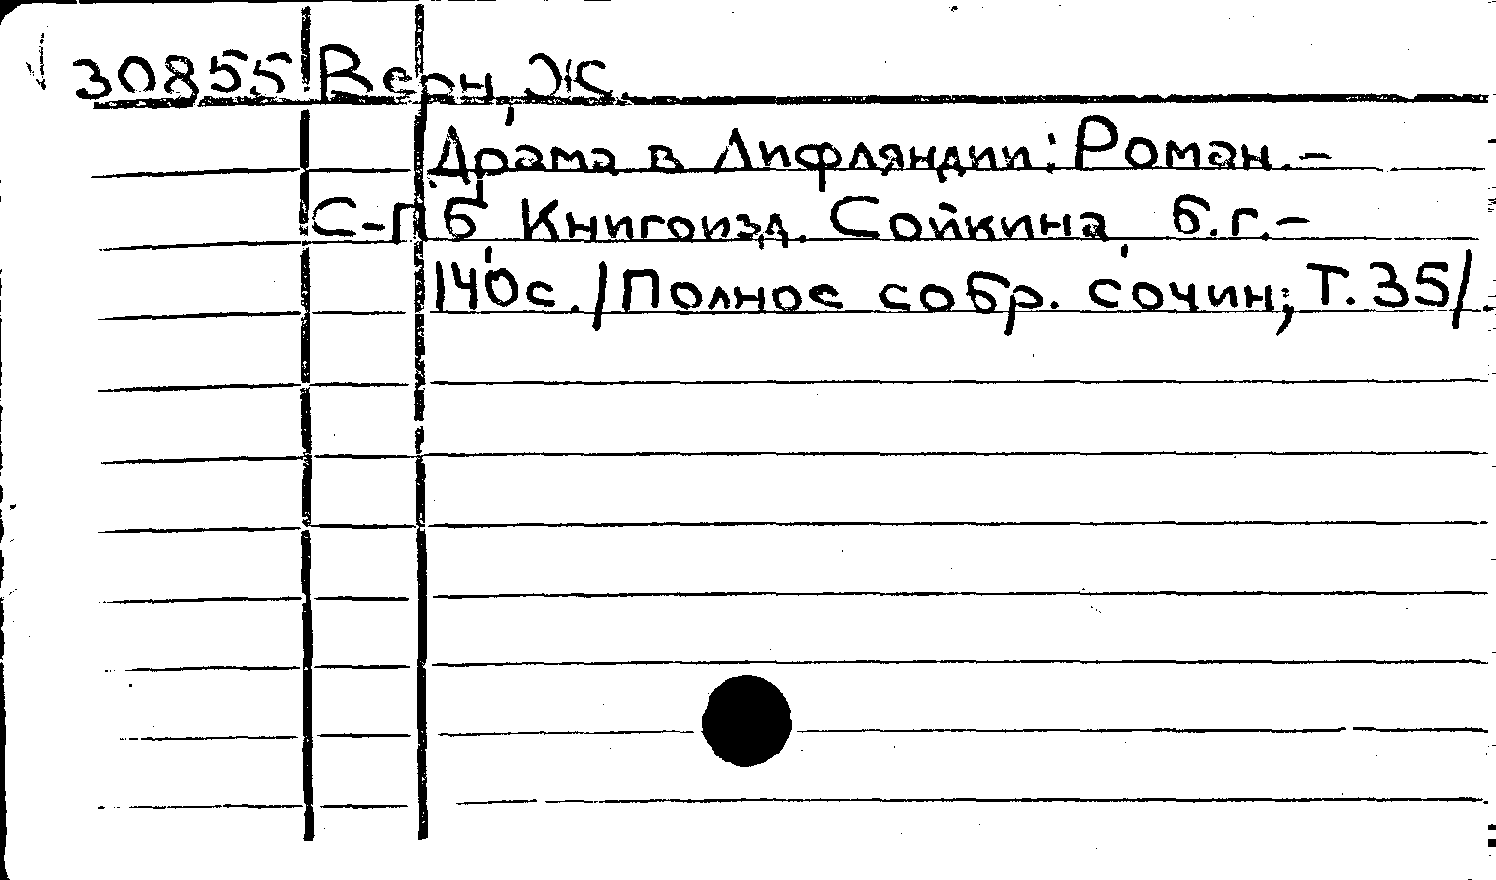 30855 Верн, Ж.
Драма в Лифляндии: Роман.–
С-Пб, Книгоизд. Сойкина, б.г.–
140с./Полное собр. сочин; Т. 35/.